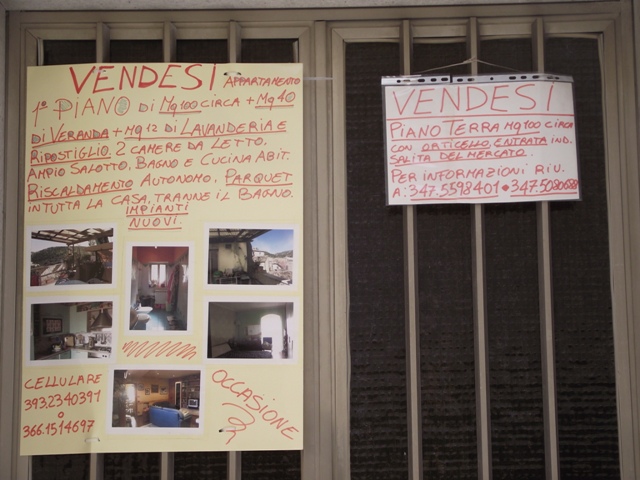 VENDESI APPARTAMENTO
1º PIANO DI MQ100 CIRCA + MQ40
DI VERANDA + MQ12 DI LAVANDERIA E
RIPOSTIGLIO. 2 CAMERE DA LETTO.
AMPIO SALOTTO, BAGNO E CUCINA ABIT.
RISCALDAMENTO AUTONOMO, PARQUET
IN TUTTA LA CASA, TRANNE IL BAGNO.
IMPIANTI
NUOVI.
CELLULARE
393.2340391
O
366.1514697
OCCASIONE
VENDESI
PIANO TERRA MQ100 CIRCA
CON ORTICELLO, ENTRATA IND.
SALITA DEL MERCATO.
PER INFORMAZIONI RIV.
A: 347.5598401 • 347.5080688